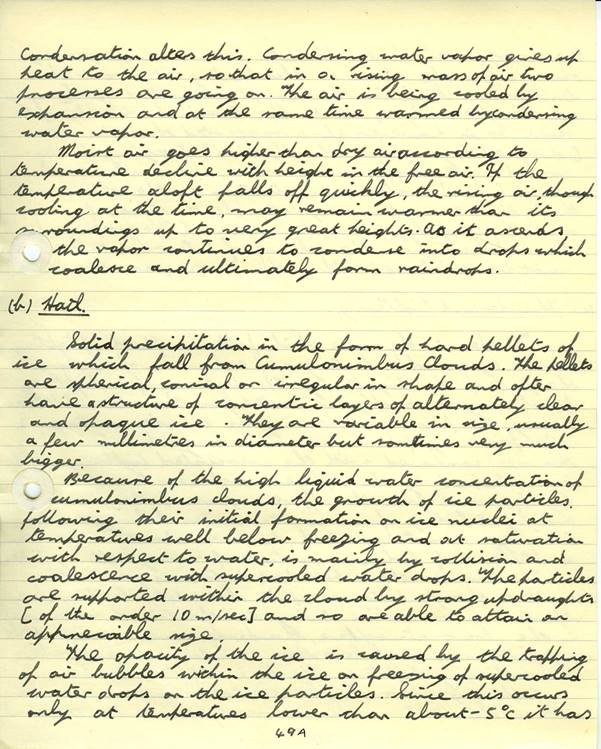 Condensation alters this. Condensing water vapor gives up
heat to the air, so that in a rising mass of air two
processes are going on. The air is being cooled by
expansion and at the same time warmed by condensing
water vapor.
Moist air goes higher than dry air according to
temperature decline with height in the free air. If the
temperature aloft falls off quickly, the rising air, though
cooling at the time, may remain warmer than its
surroundings up to very great heights. As it ascends
the vapor continues to condense into drops which
coalesce and ultimately form raindrops.
(b) Hail.
Solid precipitation in the form of hard pellets of
ice which fall from Cumulonimbus Clouds. The pellets
are spherical, conical or irregular in shape and often
have a structure of concentric layers of alternately clear
and opaque ice. They are variable in size, usually
a few millimetres in diameter but somtimes very much
bigger.
Because of the high liquid water concentration of
cumulonimbus clouds, the growth of ice particles,
following their initial formation on ice nuclei at
temperatures well below freezing and at saturation
with respect to water, is mainly by collision and
coalescence with supercooled water drops. The particles
are supported within the cloud by strong updraughts
[of the order 10 m/sec] and so are able to attain an
appreciable size.
The opacity of the ice is caused by the trapping
of air bubbles within the ice on freezing of supercooled
water drops on the ice particles. Since this occurs
only at temperatures lower than about -5°c it has
49A